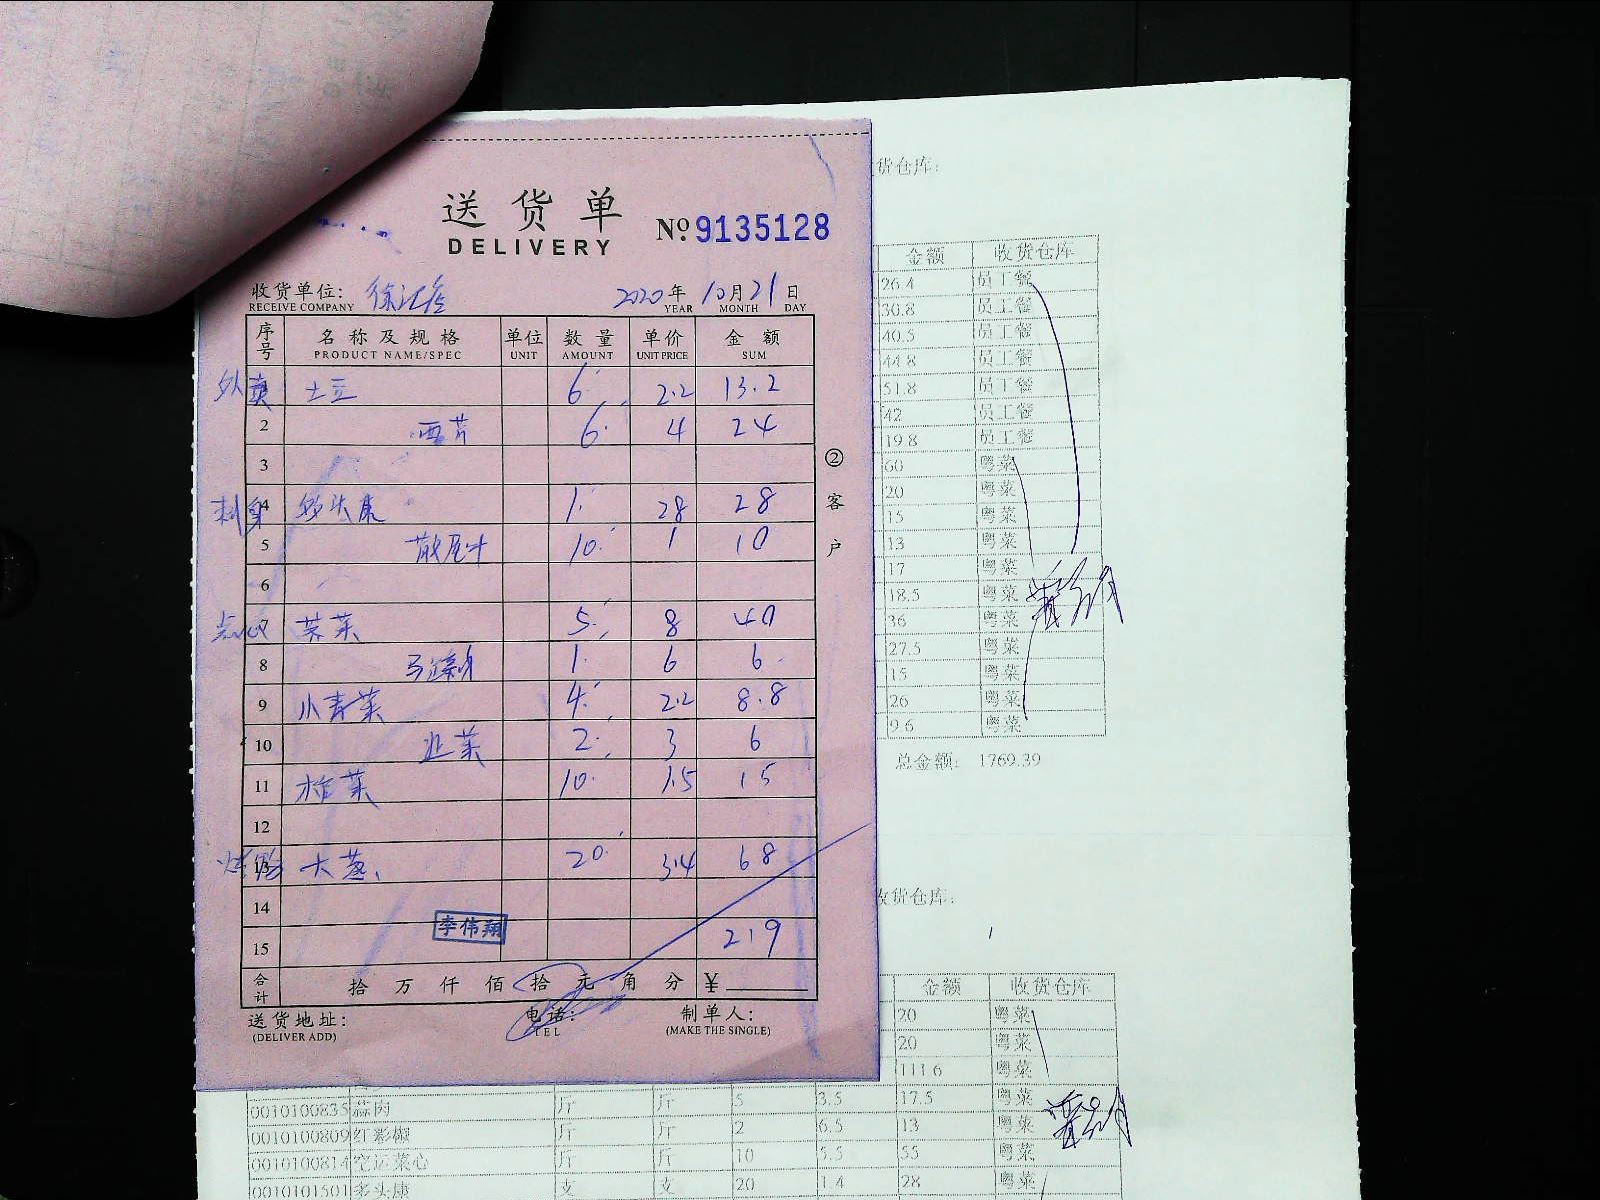 送货单
DELIVERY
No 9135128
收货单位:
RECEIVE COMPANY
2020年10月21日
YEAR MONTH DAY
序号 名称及规格 单位 数量 单价 金额
PRODUCT NAME/SPEC UNIT AMOUNT UNIT PRICE SUM
外卖 土豆 6 2.2 13.2
2 西芹 6 4 24
3
刺身 4 多头康 1 28 28
5 10 1 10
6
点心 7 荠菜 5 8 40
8 1 6 6
9 小青菜 4 2.2 8.8
10 韭菜 2 3 6
11 榨菜 10 1.5 15
12
13 大葱 20 3.4 68
14
李伟翔
15 219
合计 拾万仟佰拾元角分 ¥
送货地址: 电话: 制单人:
(DELIVER ADD) TEL (MAKE THE SINGLE)
②客户
货仓库:
金额 收货仓库
26.4 员工餐
30.8 员工餐
40.5 员工餐
44.8 员工餐
51.8 员工餐
42 员工餐
19.8 员工餐
60 粤菜
20 粤菜
15 粤菜
13 粤菜
17 粤菜
18.5 粤菜
36 粤菜
27.5 粤菜
15 粤菜
26 粤菜
9.6 粤菜
总金额: 1769.39
收货仓库:
金额 收货仓库
20 粤菜
20 粤菜
111.6 粤菜
0010100835 蒜肉 斤 斤 5 3.5 17.5 粤菜
0010100809 红彩椒 斤 斤 2 6.5 13 粤菜
0010100814 空运菜心 斤 斤 10 5.5 55 粤菜
0010101501 多头康 支 支 20 1.4 28 粤菜